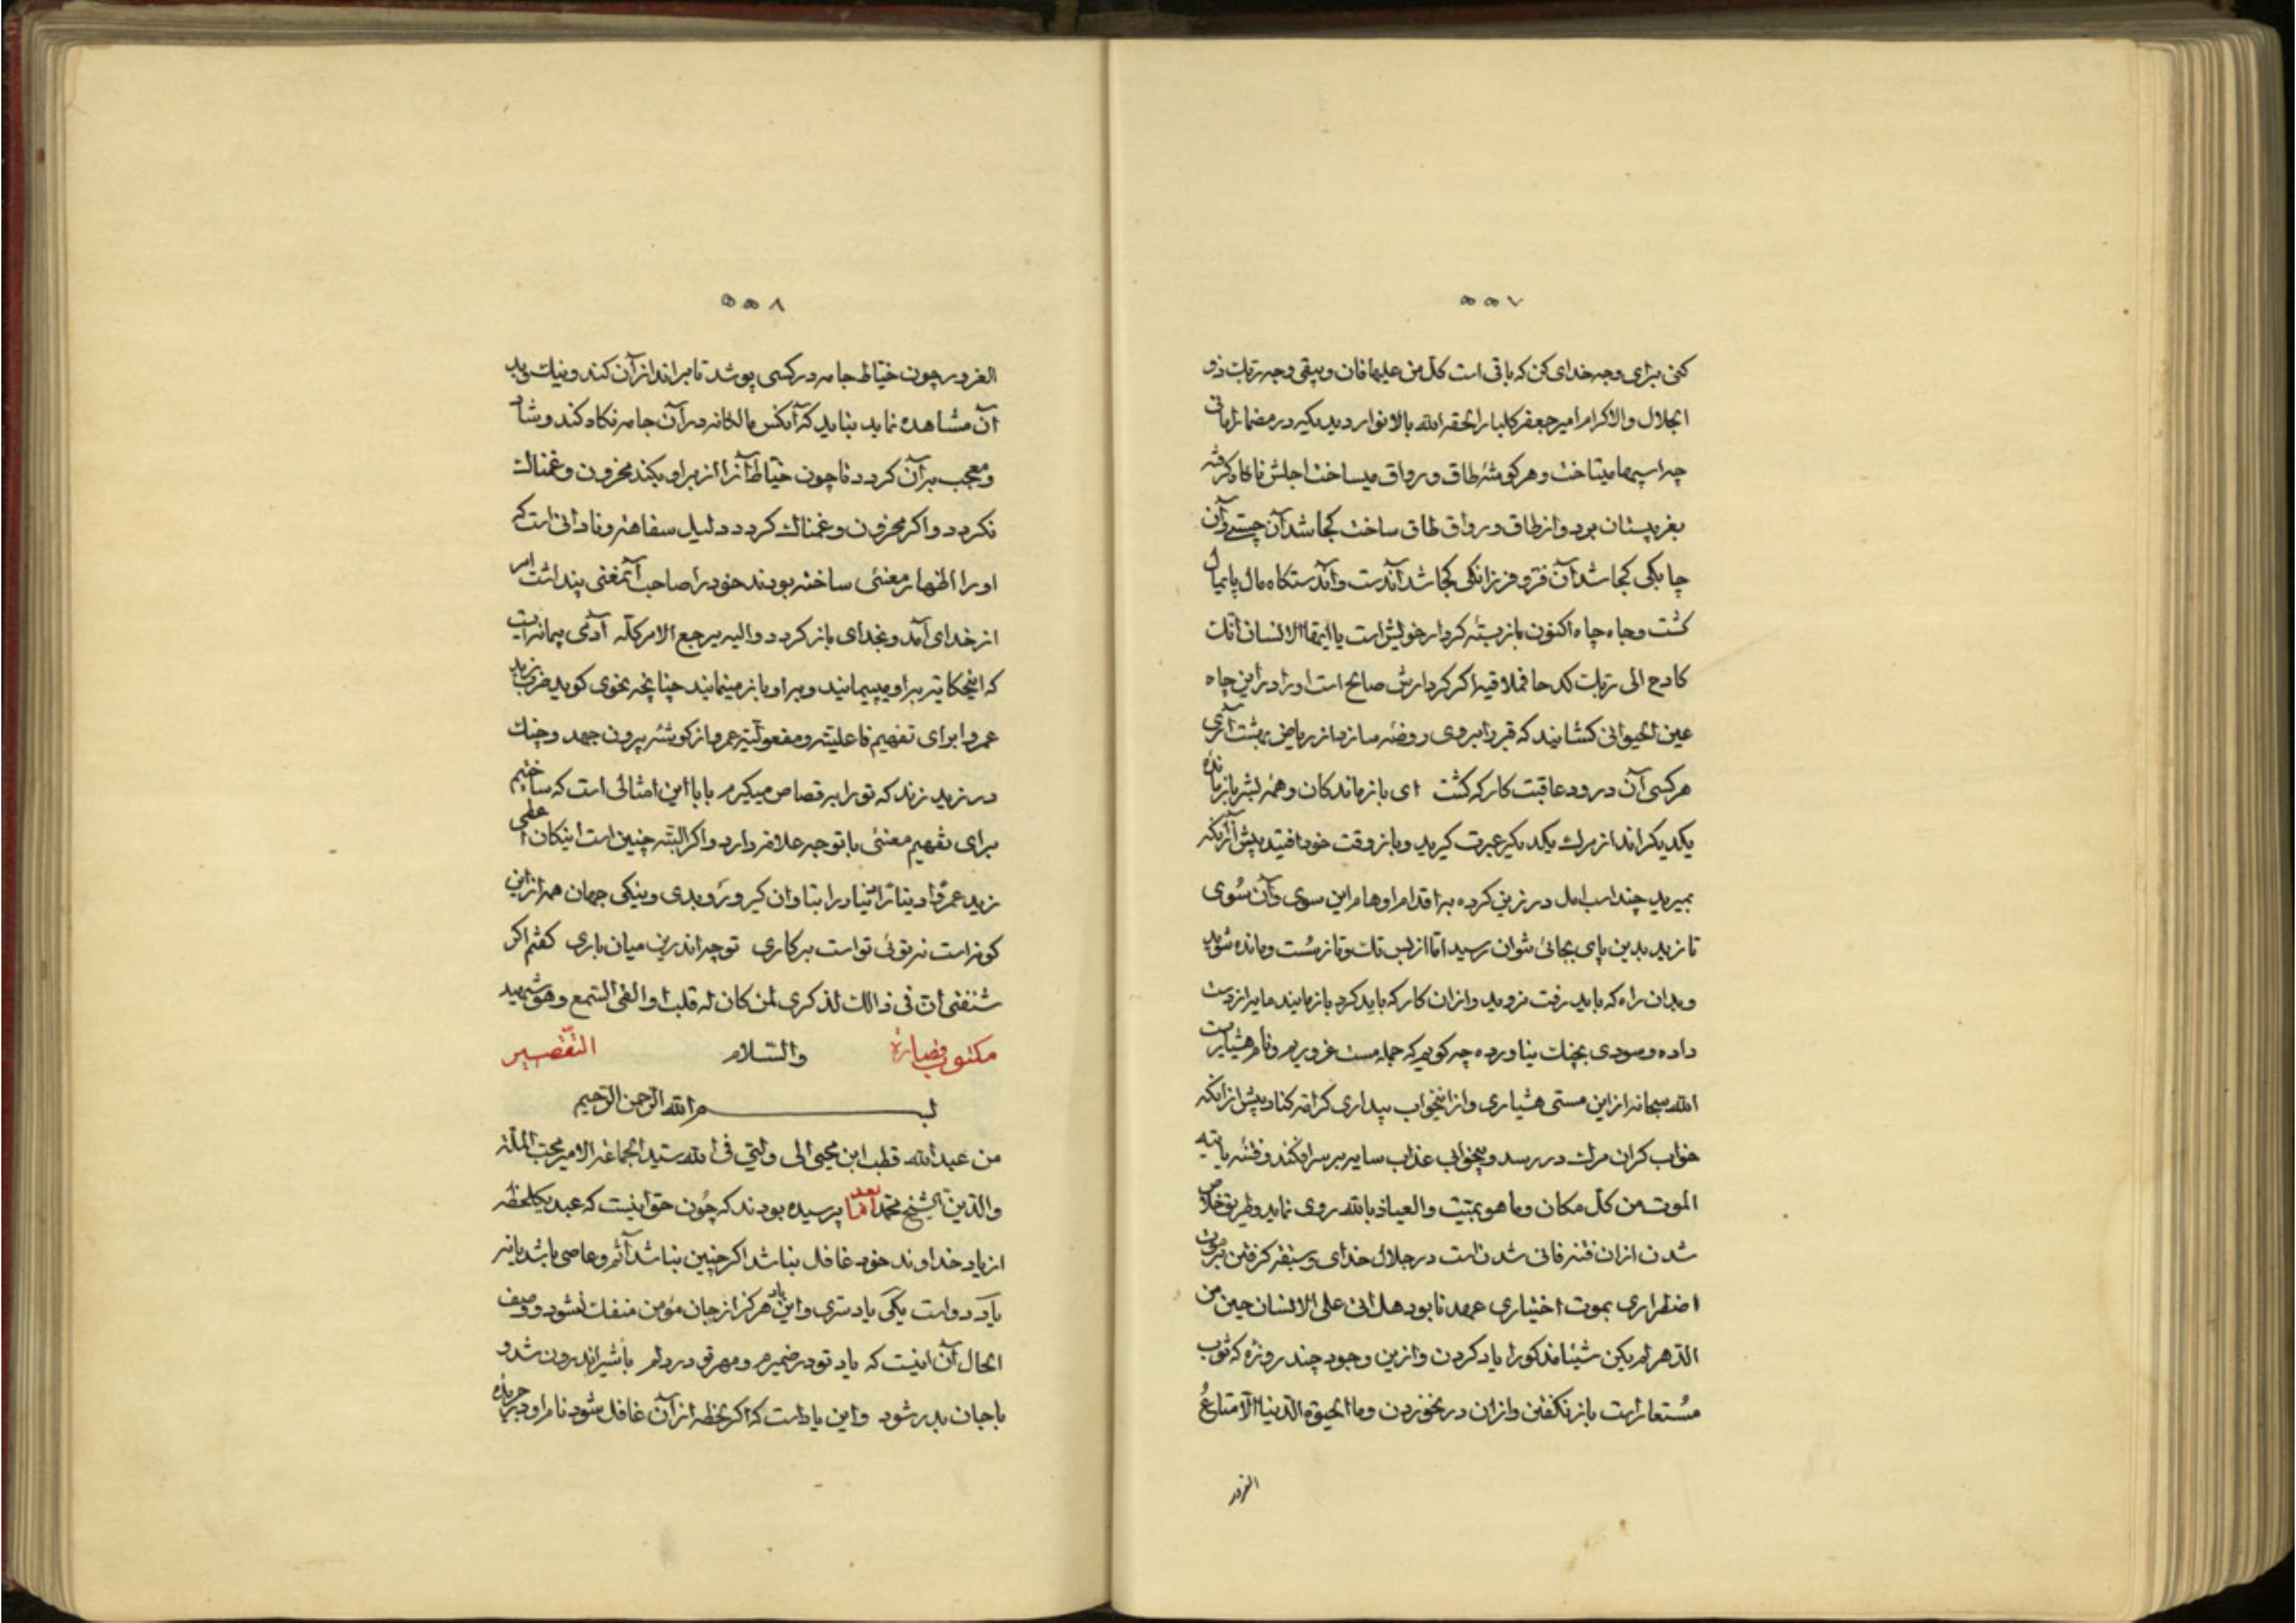 ۵۵۷
کنی برای وجه خدای کن که باقی است کل من علیها فان ویبقی وجه ربک ذو
الجلال والاکرام امیر جعفر کلبار الحقه الله بالانوار دیدیکیر در مضمار امانی
چه اسپها میتاخت و هر کوشه طاق و رواق میساخت اجلش ناکاه کرفته
بغربستان برد و از طاق و رواق طاق ساخت کجا شد آن چستی و آن
چابکی کجا شد آن فر و فرزانکی کجا شد آندست و آندستکاه مال پایمال
کشت و جاه چاه اکنون باز بسته کردار خویش است یا ایها الانسان انک
کادح الی ربک کدحا فملاقیه اکر کردارش صالح است او را در این چاه
عین الحیوانی کشایند که قبر را بروی روضه سازد از ریاض بهشت آری
هر کسی آن درود عاقبت کار که کشت ای بازماندکان و همه لشر بازمانده
یکدیکر اند از مرک یکدیکر عبرت کیرید و باز وقت خود افتید پیش از آنکه
بمیرید چند اسب امل در زین کرده به اقدام اوهام این سوی و آن سوی
تازید بدین پای بجائی نتوان رسید اما از پس تک و تاز سست و مانده شوید
و بدان راه که باید رفت نروید و از ان کار که باید کرد بازمانید مایه از دست
داده و سودی بچنک نیاورده چه کویم که جمله مست غروریم و نام هشیاریست
الله سبحانه از این مستی هشیاری و از اینخواب بیداری کرامة کناد پیش از انکه
خواب کران مرک در رسد و بیخوابی عذاب سایه بر سر افکند و فتنه یاتیه
الموت من کل مکان وما هو بمیت والعیاذ بالله روی نماید و طریق خلاص
شدن از ان فتنه فانی شدنست در جلال خدای و سبقه کرفتن بر موت
اضطراری بموت اختیاری عهد نابود هل اتی علی الانسان حین من
الدهر لم یکن شیئا مذکورا یاد کردن و ازین وجود چند روزه که ثوب
مستعار است باز نکفتن و از ان در نخوردن وما الحیوة الدنیا الا متاع
الغرور
۵۵۸
الغرور چون خیاط جامه در کسی پوشد تا بر اندازه آن کند و نیک و بد
آن مشاهده نماید نباید که آنکس مالکانه در آن جامه نکاه کند و شاد
و معجب بر آن کردد تا چون خیاط آنرا از بر او بکند محزون و غمناک
نکردد و اکر محزون و غمناک کردد دلیل سفاهت و نادانی است که
او را اظهار معنئی ساخته بودند خود را صاحب آنمعنی پنداشت امر
از خدای آمد و بخدای باز کردد والیه یرجع الامر کله آدمی پیمانه ایست
که اینحکایت بر او میپیمایند و بر او باز مینمایند چنانچه نحوی کوید ضرب زید
عمروا برای تفهیم فاعلیته و مفعولیته عمرو از کوشه بیرون جهد و چنک
در زید زند که تو را بر قصاص میکیرم بابا این امثالی است که ساختیم
برای تفهیم معنئی با تو چه علاقه دارد و اکر البته چنین است اینکان اعلمی
زید عمرو را دیناری نیاورا بتاوان کیر و رو بدی و نیکی جهان همه از این
کونه است نه توئی تو است بر کاری تو چه اندرین میان باری کفتم اکر
شنفتی ان فی ذالک لذکری لمن کان له قلب او القی السمع وهو شهید
مکتوب فصاره والسلام التقصیر
بسم الله الرحمن الرحیم
من عبد الله قطب ابن محیی الی ولیی فی الله سید الجماعة الامیر محب الملة
والدین الشیخ محمد اما بعد پرسیده بودند که چون حق اینست که عبد یکلحظه
از یاد خداوند خود غافل نباشد اکر چنین نباشد آثم و عاصی باشد یا نه
یاد دو است یکی یاد سری و این یاد هرکز از جان مؤمن منفک نشود و وصف
الحال آن اینست که یاد تو در ضمیرم و مهر تو در دلم با شیر اندرون شد و
با جان بدر شود و این یاد است که اکر لحظه از آن غافل شود نام او در جریده